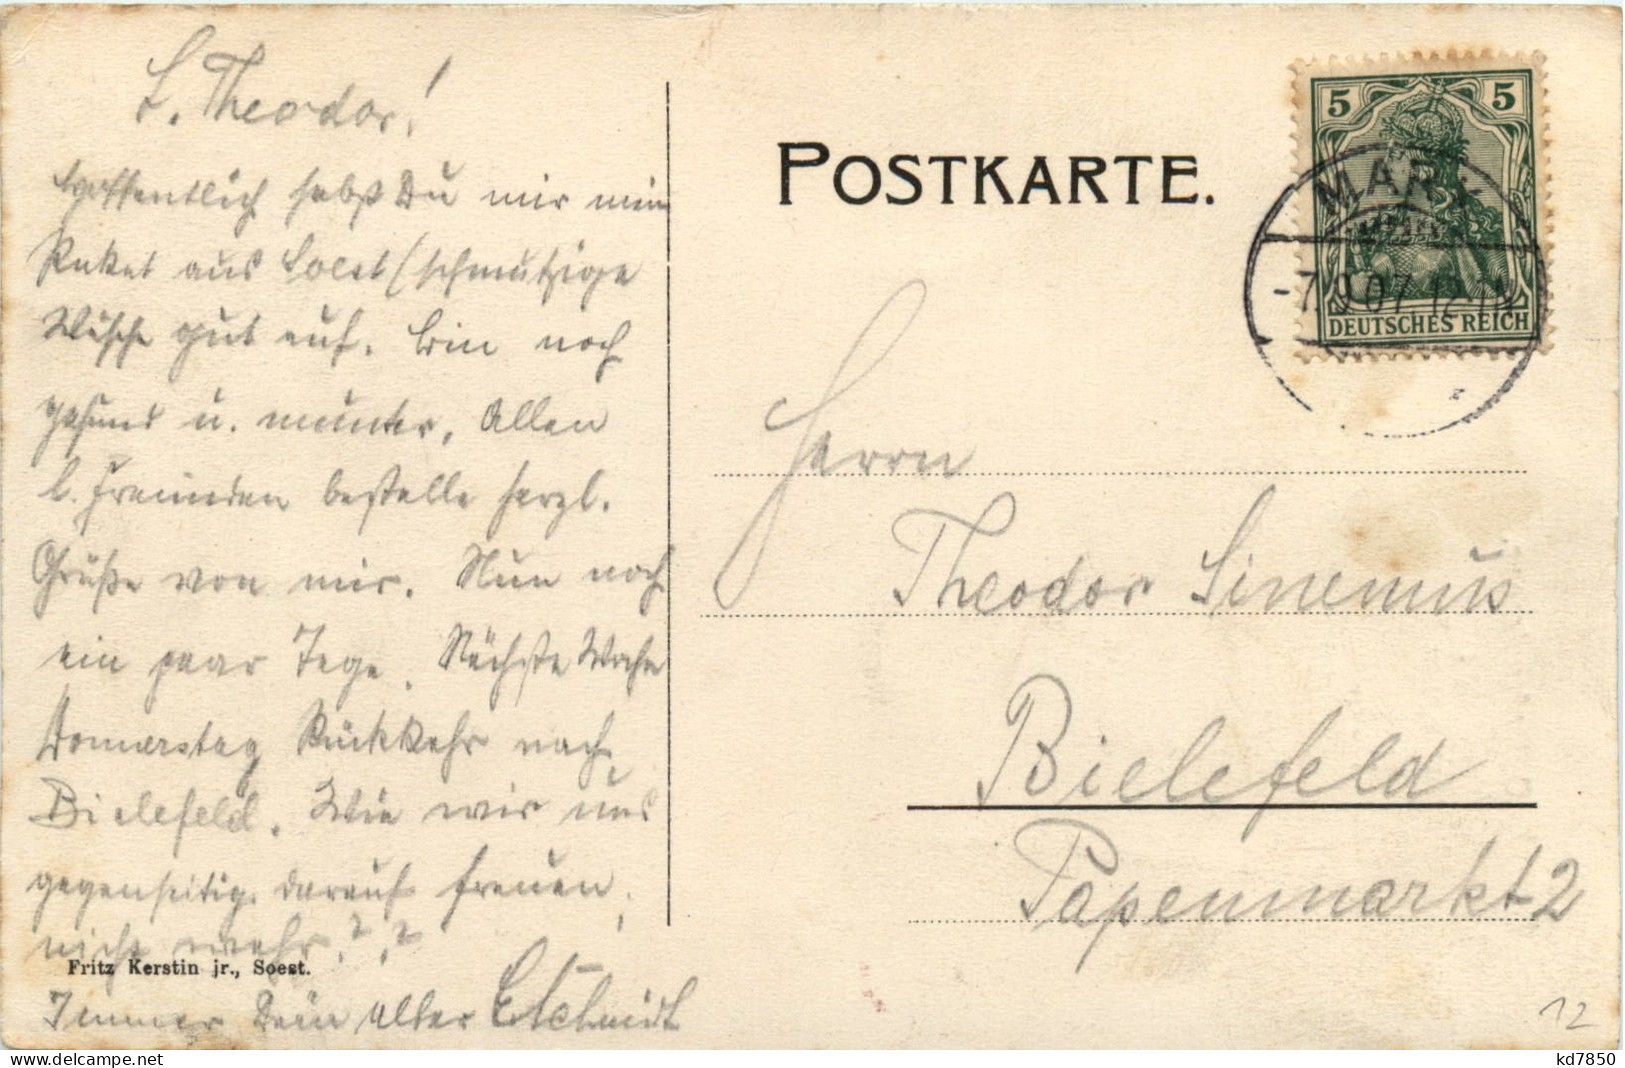 L. Theodor!
hoffentlich habst Du mir mein
Paket aus Soest (schmutzige
Wäsche gut auf. Bin noch
gesund u. munter. Allen
l. Freunden bestelle herzl.
Grüße von mir. Nun noch
ein paar Tage. Nächste Woche
Donnerstag Rückkehr nach
Bielefeld. Wie wir uns
gegenseitig darauf freuen,
nicht wahr??
Fritz Kerstin jr., Soest.
Immer Dein alter
POSTKARTE.
5 5
MARK
-7.9.07. 12-1N
DEUTSCHES REICH
Herrn
Theodor Sinemus
Bielefeld
Papenmarkt 2
12
kd7850